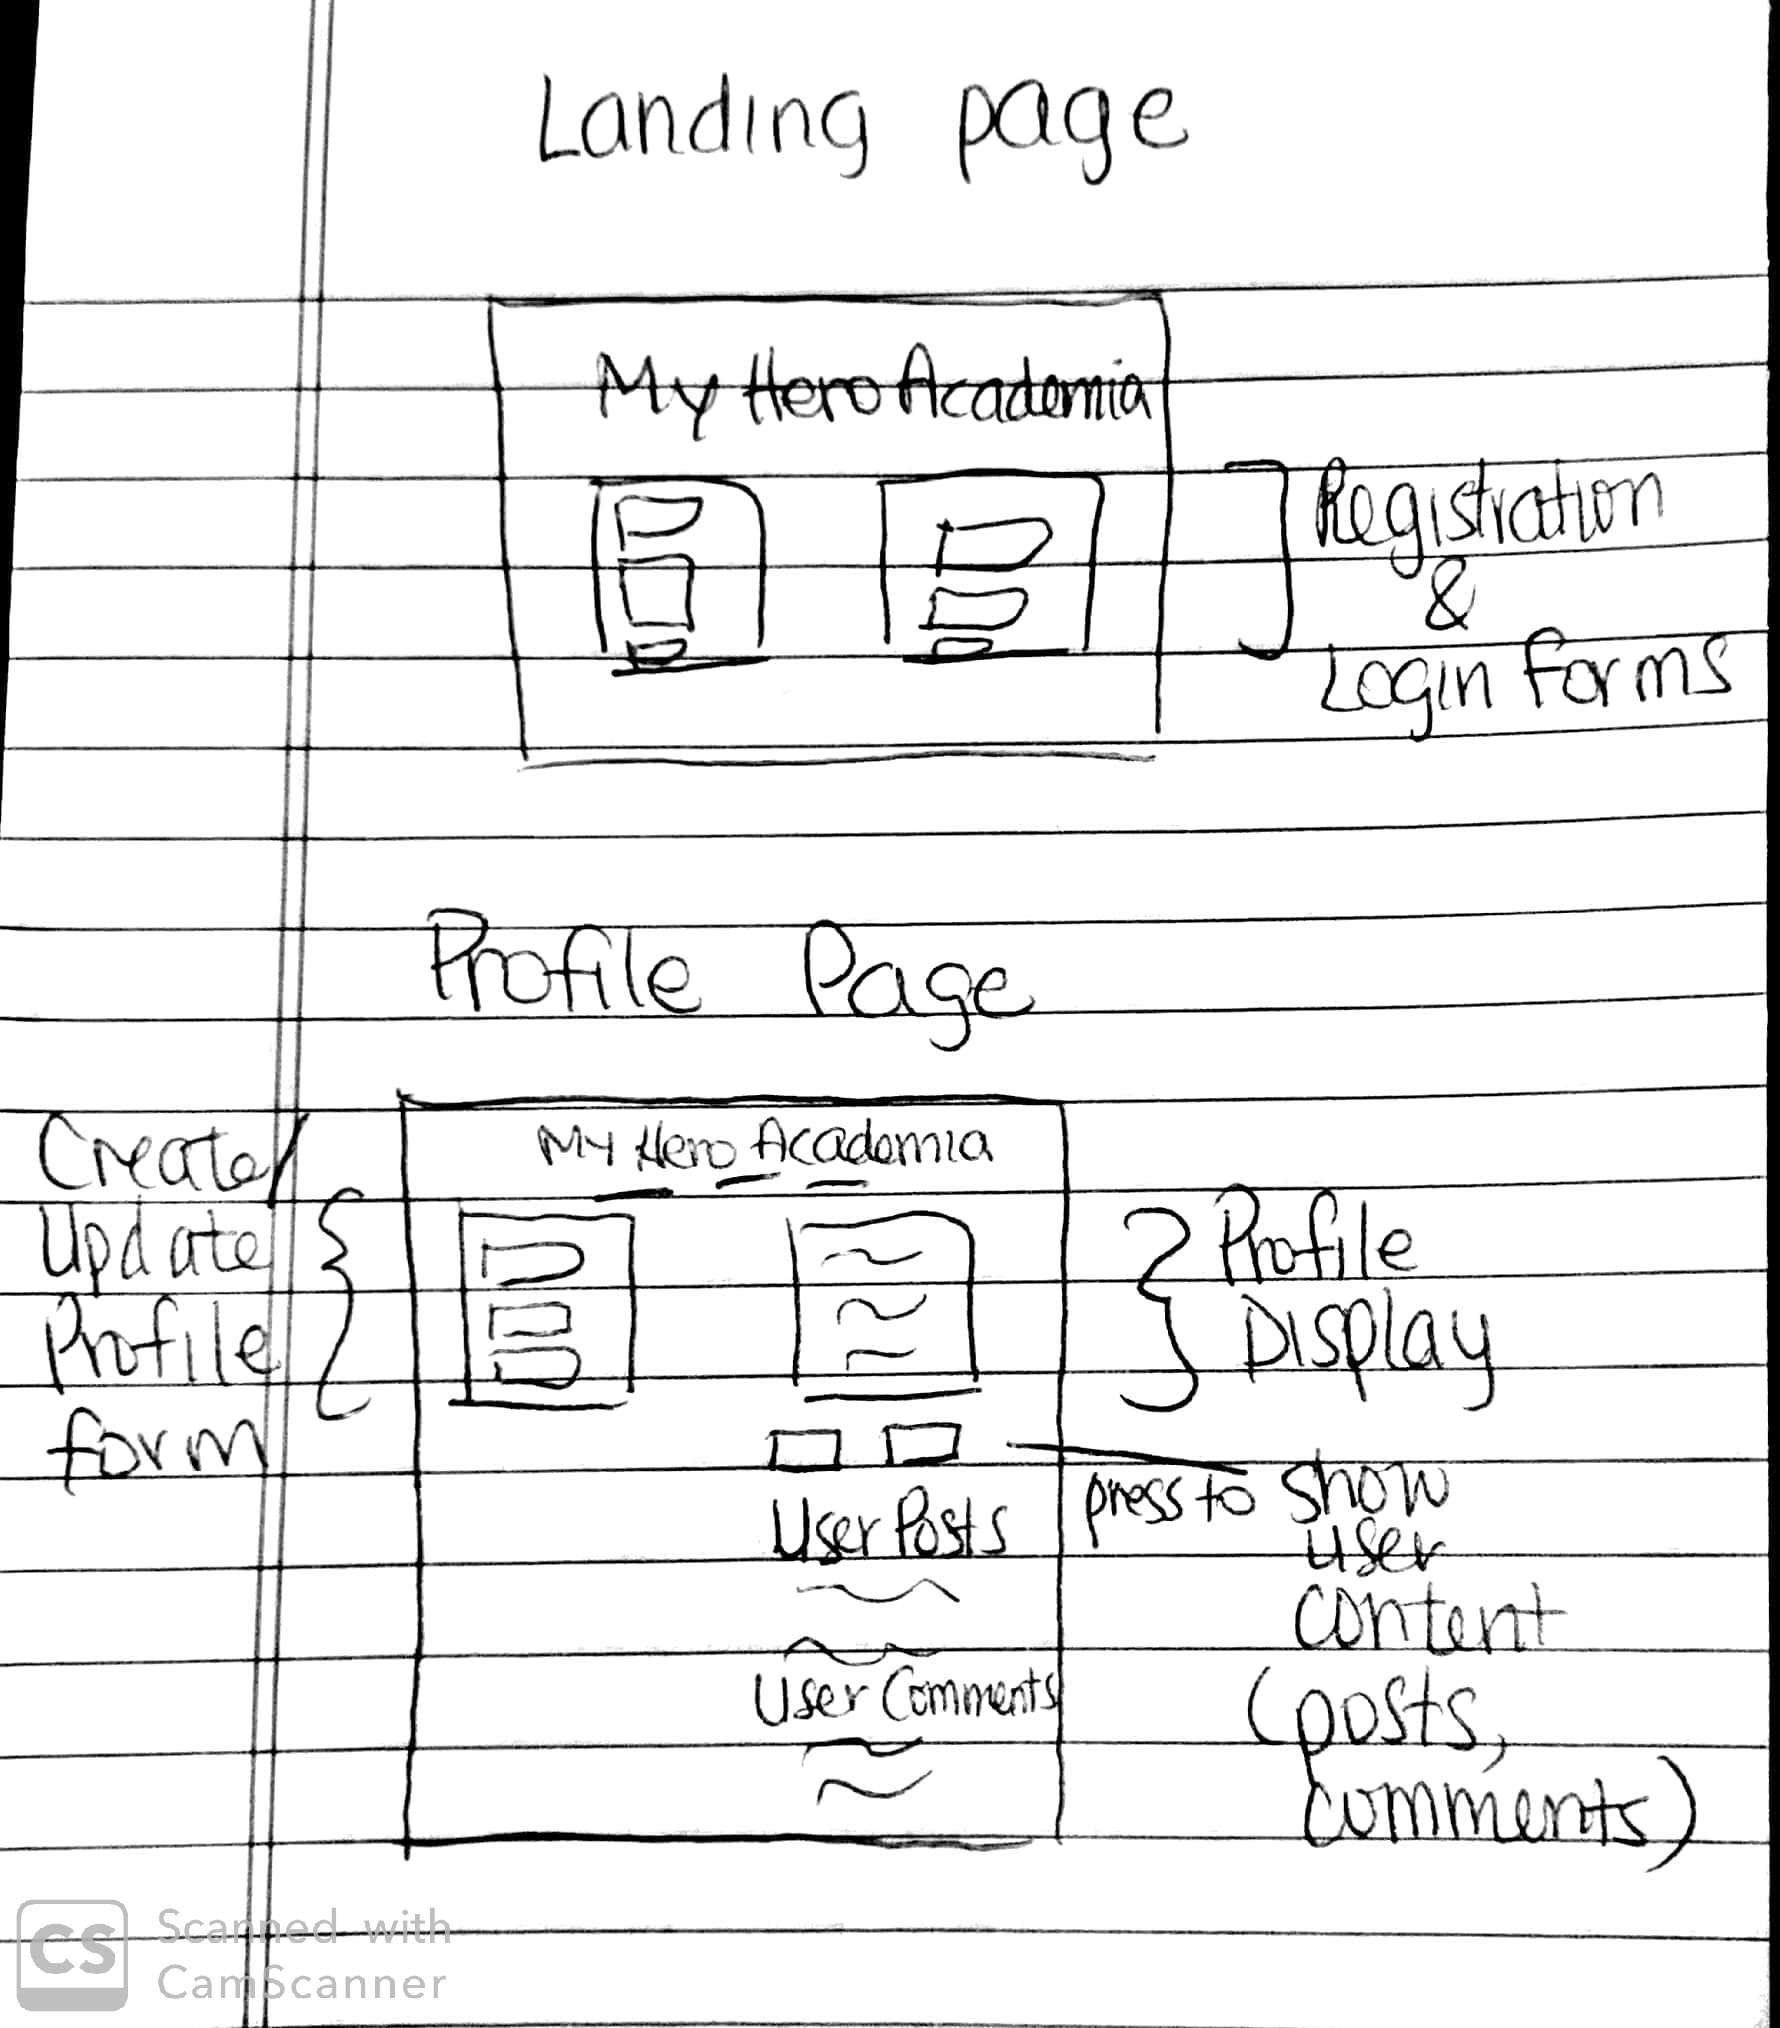 Landing page
My Hero Academia
Registration
&
Login Forms
Profile Page
Create/
Update
Profile
form
My Hero Academia
Profile
Display
press to show
user
content
(posts,
comments)
User Posts
User Comments
CS
Scanned with
CamScanner